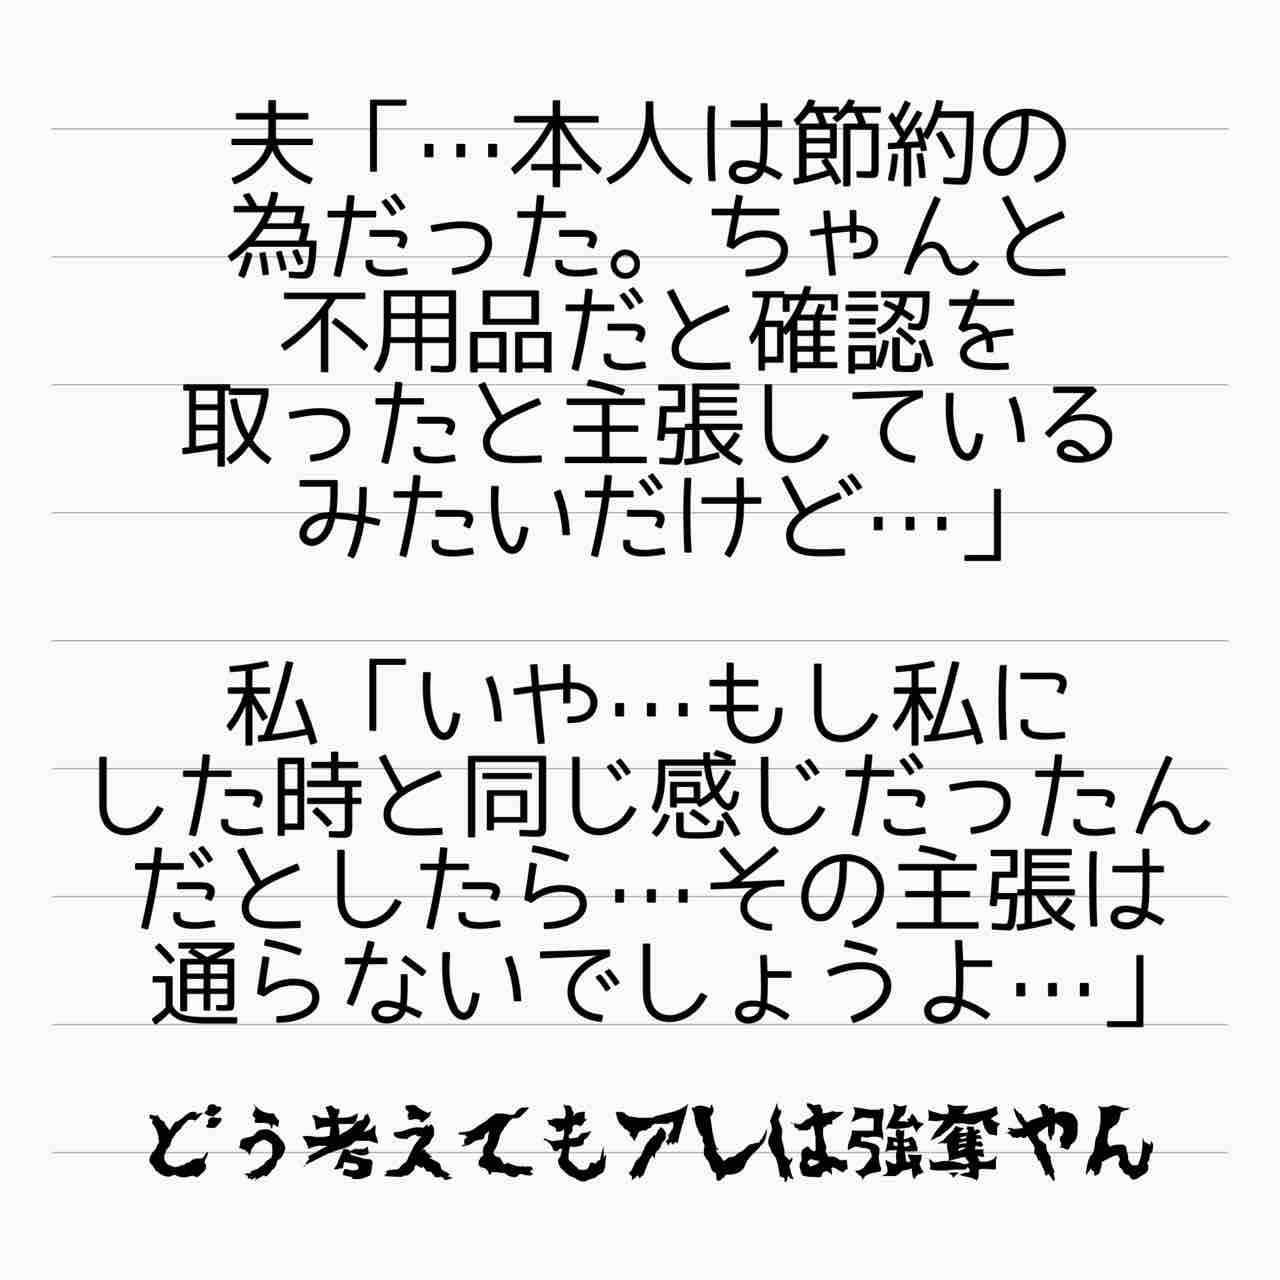 夫「…本人は節約の
為だった。ちゃんと
不用品だと確認を
取ったと主張している
みたいだけど…」
私「いや…もし私に
した時と同じ感じだったん
だとしたら…その主張は
通らないでしょうよ…」
どう考えてもアレは強奪やん